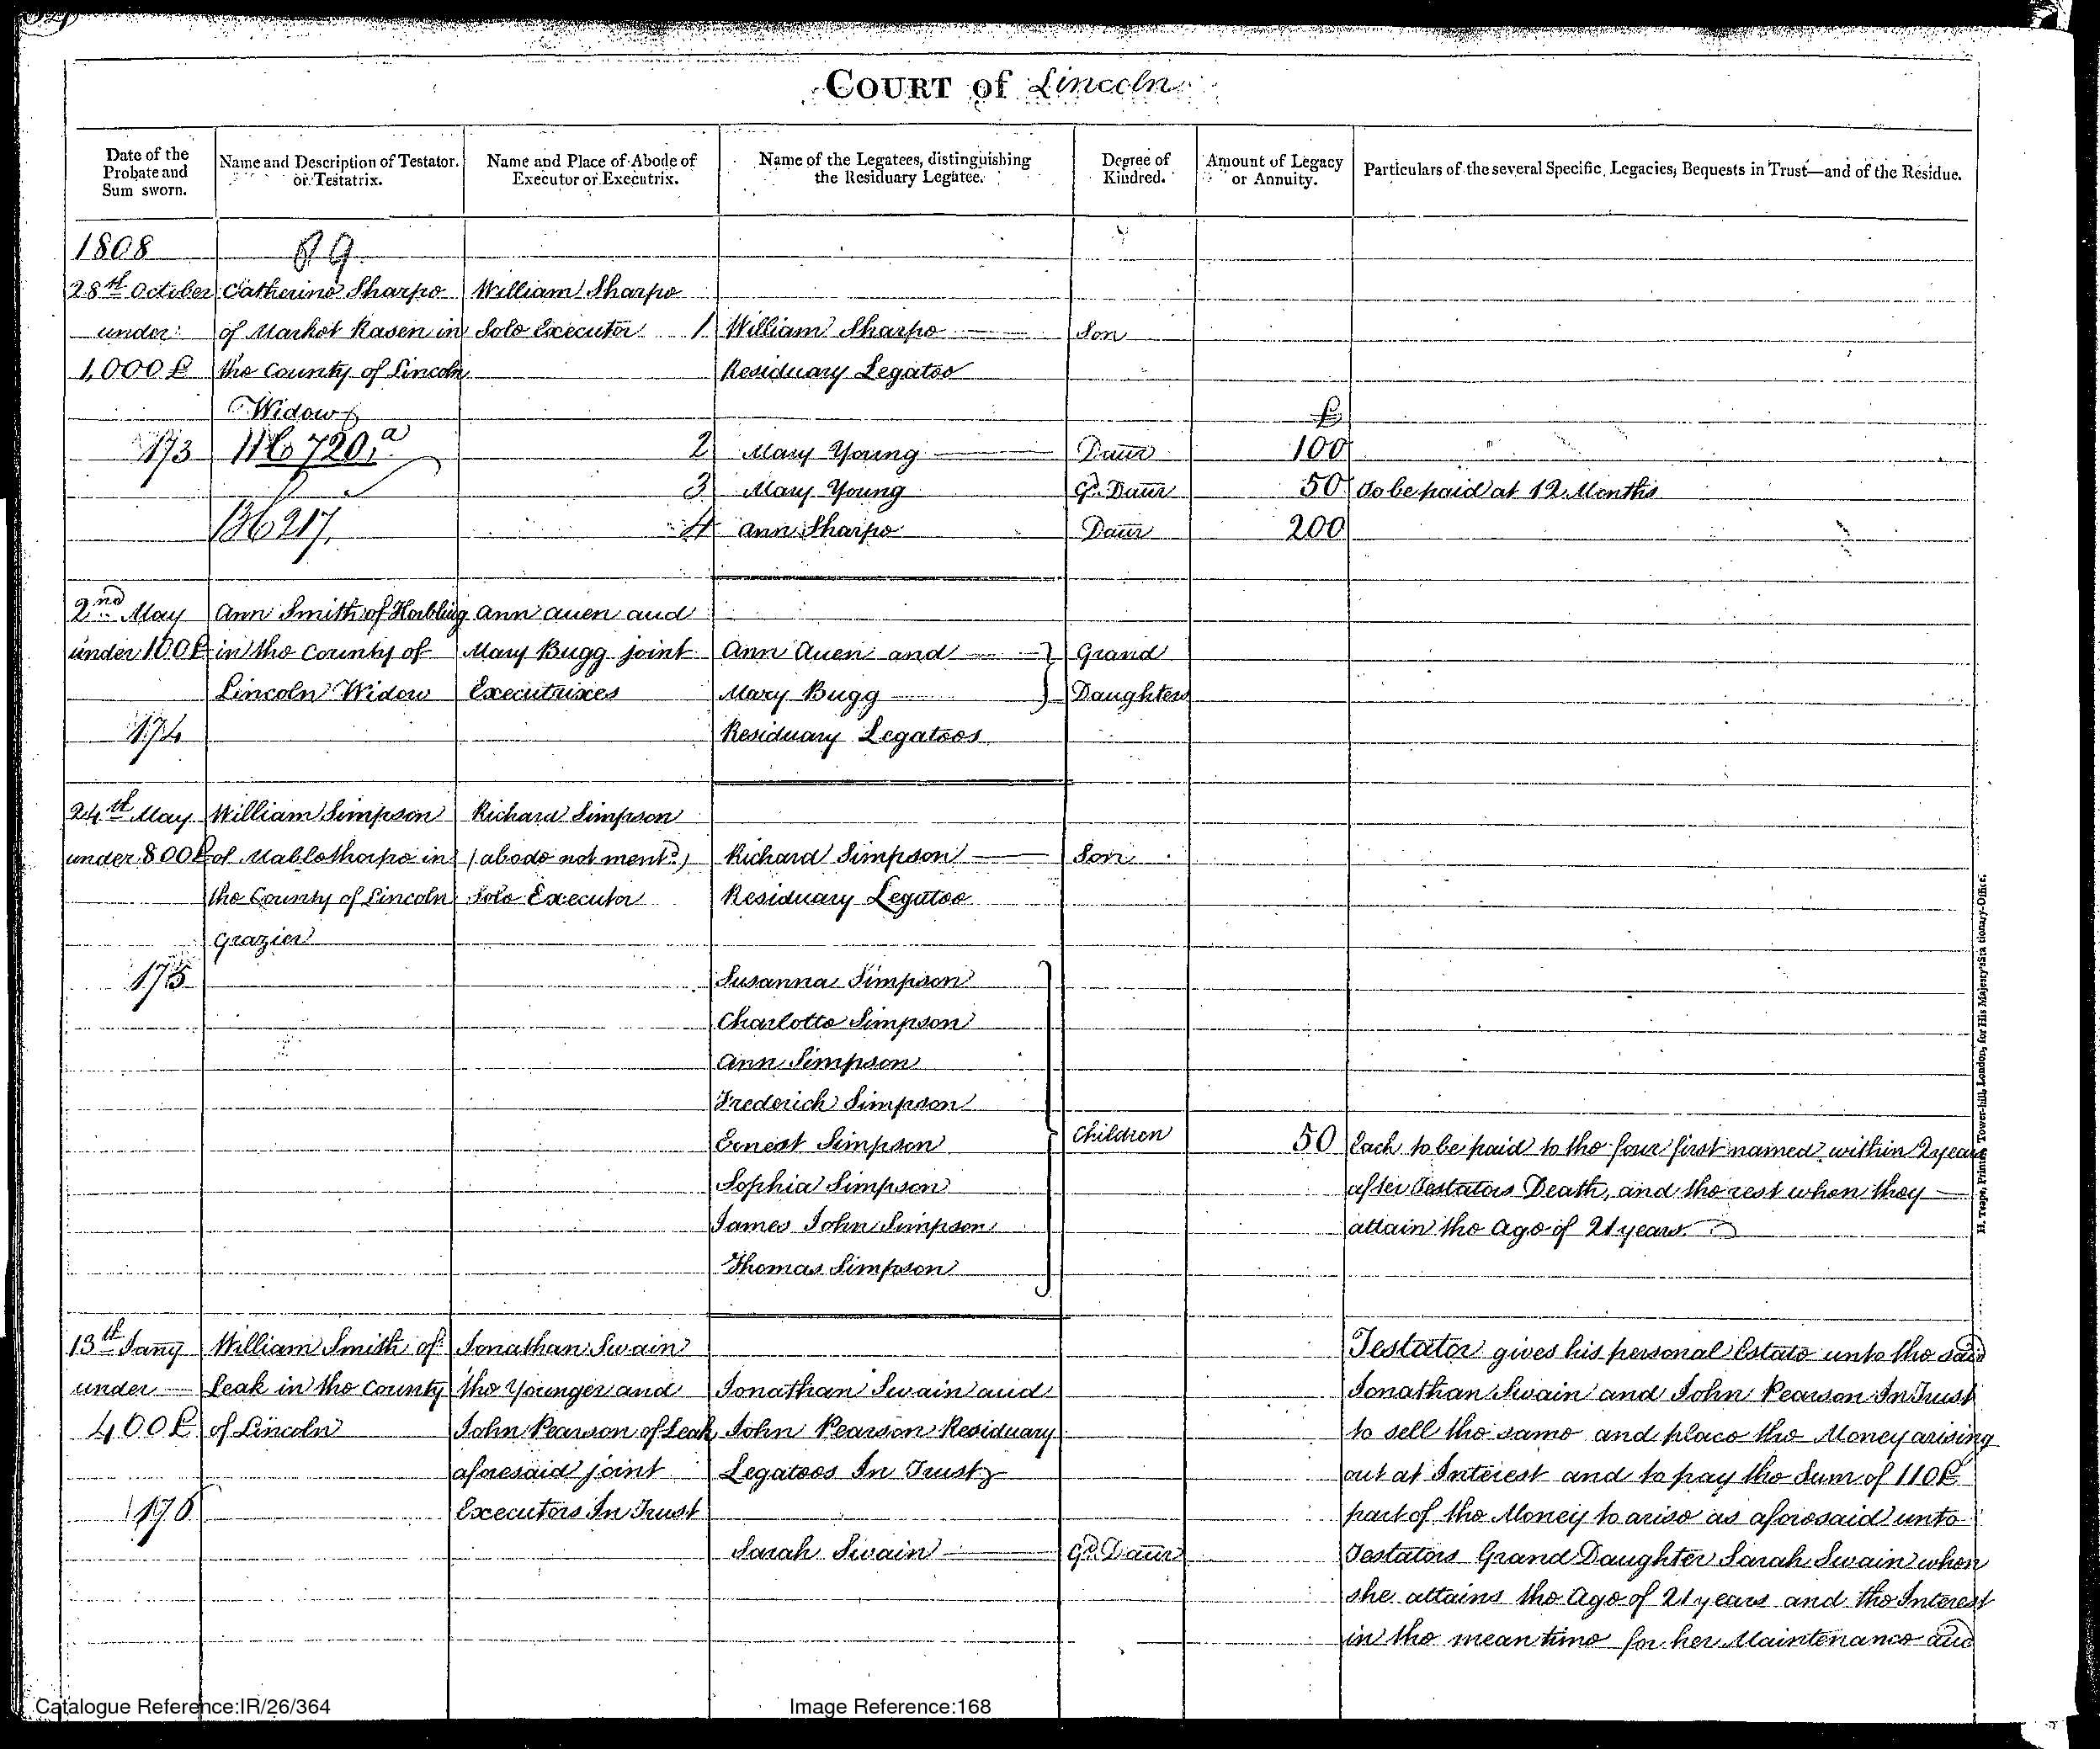 COURT of Lincoln
Date of the Probate and Sum sworn.
Name and Description of Testator or Testatrix.
Name and Place of Abode of Executor or Executrix.
Name of the Legatees, distinguishing the Residuary Legatee.
Degree of Kindred.
Amount of Legacy or Annuity.
Particulars of the several Specific Legacies, Bequests in Trust—and of the Residue.
1808
89
28th October Catherine Sharpe William Sharpe
under of Market Rasen in Sole Executor 1 William Sharpe Son
1,000£ the County of Lincoln Residuary Legatee
Widow £
173 720 a 2 Mary Young Daur 100
3 Mary Young Gd. Daur 50 To be paid at 12 Months
217 4 Ann Sharpe Daur 200
2nd May Ann Smith of Horbling Ann Auen and
under 100£ in the County of Mary Bugg joint Ann Auen and } Grand
Lincoln Widow Executrixes Mary Bugg } Daughters
174 Residuary Legatees
24th May William Simpson Richard Simpson
under 800£ of Mablethorpe in (abode not mentd.) Richard Simpson Son
the County of Lincoln Sole Executor Residuary Legatee
Grazier
175 Susanna Simpson
Charlotte Simpson
Ann Simpson
Frederick Simpson
Ernest Simpson } Children 50 Each to be paid to the four first named within 2 years
Sophia Simpson after Testators Death, and the rest when they
James John Simpson attain the Age of 21 years.
Thomas Simpson
13th Jany William Smith of Jonathan Swain Testator gives his personal Estate unto the said
under Leak in the County the Younger and Jonathan Swain and Jonathan Swain and John Pearson In Trust
400£ of Lincoln John Pearson of Leak John Pearson Residuary to sell the same and place the Money arising
aforesaid joint Legatees In Trust out at Interest and to pay the Sum of 110£
176 Executors In Trust part of the Money to arise as aforesaid unto
Sarah Swain Gd. Daur Testators Grand Daughter Sarah Swain when
she attains the Age of 21 years and the Interest
in the mean time for her Maintenance and
H. Teape, Printer, Tower-hill, London, for His Majesty's Stationary-Office.
Catalogue Reference:IR/26/364 Image Reference:168